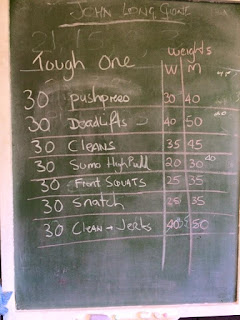 JOHN LONG
weights
Tough One W M
30 pushpress 30 40
30 Deadlifts 40 50
30 CLEANS 35 45
30 Sumo High Pull 20 30 40
30 Front SQUATS 25 35
30 Snatch 25 35
30 Clean + Jerks 40 50